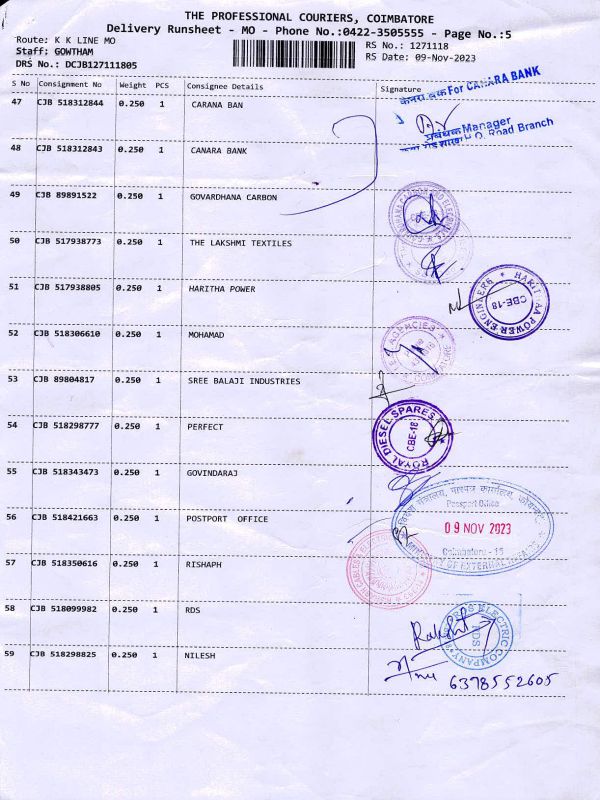 THE PROFESSIONAL COURIERS, COIMBATORE
Delivery Runsheet - MO - Phone No.:0422-3505555 - Page No.:5
Route: K K LINE MO
Staff: GOWTHAM
DRS No.: DCJB127111805
RS No.: 1271118
RS Date: 09-Nov-2023
S No Consignment No Weight PCS Consignee Details Signature
47 CJB 518312844 0.250 1 CARANA BAN
केनरा बैंक For CANARA BANK
प्रबंधक Manager
H.O. Road Branch
48 CJB 518312843 0.250 1 CANARA BANK
49 CJB 89891522 0.250 1 GOVARDHANA CARBON
50 CJB 517938773 0.250 1 THE LAKSHMI TEXTILES
51 CJB 517938805 0.250 1 HARITHA POWER
HARITAA POWER ENGINEERS
CBE-18
52 CJB 518306610 0.250 1 MOHAMAD
AGENCIES
53 CJB 89804817 0.250 1 SREE BALAJI INDUSTRIES
54 CJB 518298777 0.250 1 PERFECT
ROYAL DIESEL SPARES
CBE-18
55 CJB 518343473 0.250 1 GOVINDARAJ
56 CJB 518421663 0.250 1 POSTPORT OFFICE
विदेश मंत्रालय, पासपोर्ट कार्यालय,
Passport Office
09 NOV 2023
Coimbatore - 15
MINISTRY OF EXTERNAL AFFAIRS
57 CJB 518350616 0.250 1 RISHAPH
58 CJB 518099982 0.250 1 RDS
Rakshit
ELECTRIC COMPANY
RDS
59 CJB 518298825 0.250 1 NILESH
6378552605